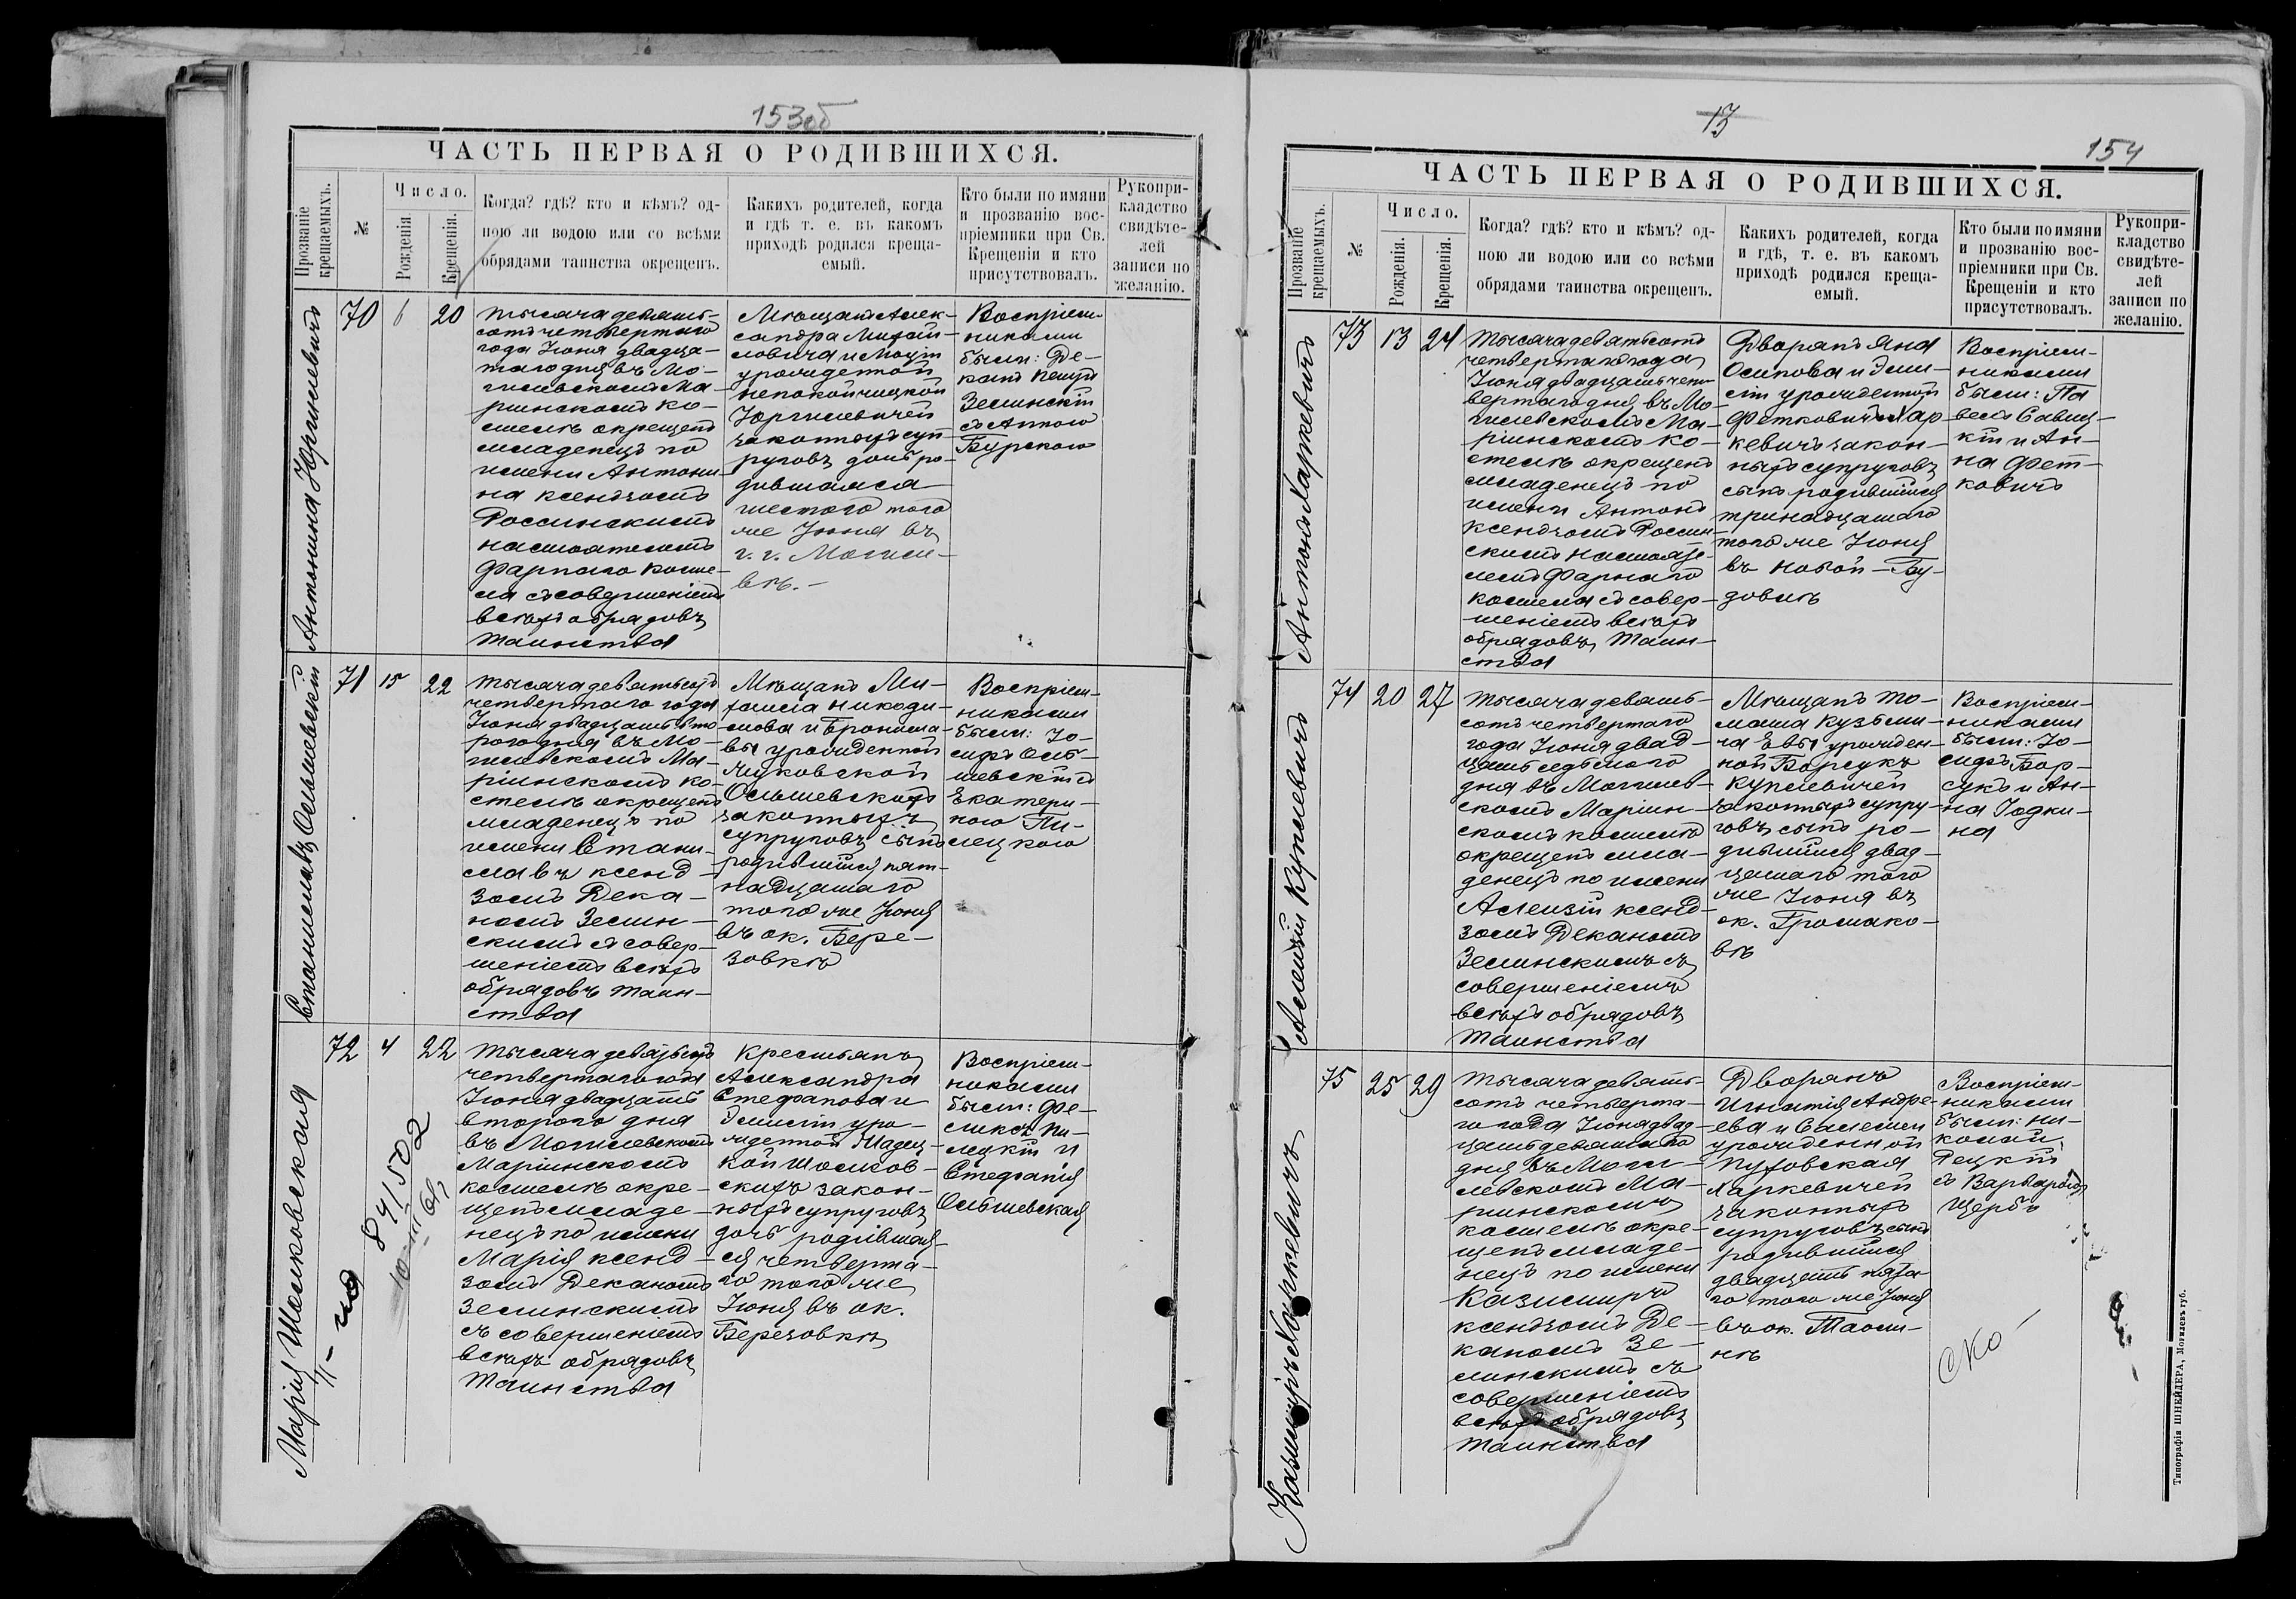 153об
ЧАСТЬ ПЕРВАЯ О РОДИВШИХСЯ.
Прозваніе крещаемыхъ.
№
Число.
Рожденія.
Крещенія.
Когда? гдѣ? кто и кѣмъ? од-
ною ли водою или со всѣми
обрядами таинства окрещенъ.
Какихъ родителей, когда
и гдѣ т. е. въ какомъ
приходѣ родился креща-
емый.
Кто были по имяни
и прозванію вос-
пріемники при Св.
Крещеніи и кто
присутствовалъ.
Рукопри-
кладство
свидѣте-
лей
записи по
желанію.
Антонина Юргилевичъ
70 6 20
тысяча девять-
сотъ четвертаго
года Іюня двадца-
таго дня въ Мо-
гилевскомъ Ма-
ріинскомъ ко-
стелѣ окрещенъ
младенецъ по
имени Антони-
на ксендзомъ
Россинскимъ
настоятелемъ
Фарнаго косте-
ла съ совершеніемъ
всѣхъ обрядовъ
таинства
Мѣщанъ Алек-
сандра Михай-
ловича и
урожденной
Непокойчицкой
Юргилевичей
законныхъ суп-
руговъ дочь ро-
дившаяся
шестого того
же Іюня въ
г. г. Могиле-
вѣ.-
Воспріем-
никами
были: Де-
канъ
Зелинскій
съ Анною
Бурскою
Станиславъ Ольшевскій
71 15 22
тысяча девятьсотъ
четвертаго года
Іюня двадцать вто-
рого дня въ Мо-
гилевскомъ Ма-
ріинскомъ ко-
стелѣ окрещенъ
младенецъ по
имени Стани-
славъ ксенд-
зомъ Дека-
номъ Зелин-
скимъ съ совер-
шеніемъ всѣхъ
обрядовъ таин-
ства
Мѣщанъ Ми-
хаила Никоди-
мова и Бронисла-
вы урожденной
Жуковской
Ольшевскихъ
законныхъ
супруговъ сынъ
родившійся пят-
надцатаго
того же Іюня
въ ок. Бере-
зовкѣ
Воспріем-
никами
были: Іо-
сифъ Оль-
шевскій съ
Екатери-
ною Пи-
лецкою
Марія Шолковская
72 4 22
84/502
10-III 61
тысяча девятьсотъ
четвертаго года
Іюня двадцать
второго дня
въ Могилевскомъ
Маріинскомъ
костелѣ окре-
щенъ младе-
нецъ по имени
Марія ксенд-
зомъ Деканомъ
Зелинскимъ
съ совершеніемъ
всѣхъ обрядовъ
таинства
Крестьянъ
Александра
Стефанова и
Эмиліи уро-
жденной Шадец-
кой Шолков-
скихъ закон-
ныхъ супруговъ
дочь родившая-
ся четверта-
го того же
Іюня въ ок.
Березовкѣ
Воспріем-
никами
были: Фе-
ликсъ Пи-
лецкій и
Стефанія
Ольшевская
13
154
ЧАСТЬ ПЕРВАЯ О РОДИВШИХСЯ.
Прозваніе крещаемыхъ.
№
Число.
Рожденія.
Крещенія.
Когда? гдѣ? кто и кѣмъ? од-
ною ли водою или со всѣми
обрядами таинства окрещенъ.
Какихъ родителей, когда
и гдѣ, т. е. въ какомъ
приходѣ родился креща-
емый.
Кто были по имяни
и прозванію вос-
пріемники при Св.
Крещеніи и кто
присутствовалъ.
Рукопри-
кладство
свидѣте-
лей
записи по
желанію.
Антонъ Харкевичъ
73 13 24
тысяча девятьсотъ
четвертаго года
Іюня двадцать чет-
вертаго дня въ Мо-
гилевскомъ Ма-
ріинскомъ ко-
стелѣ окрещенъ
младенецъ по
имени Антонъ
ксендзомъ Россин-
скимъ настояте-
лемъ Фарнаго
костела съ совер-
шеніемъ всѣхъ
обрядовъ таин-
ства
Дворянъ Яна
Осипова и Эми-
ліи урожденной
Фетковичъ Хар-
кевичъ закон-
ныхъ супруговъ
сынъ родившійся
тринадцатаго
того же Іюня
въ Новой-Бу-
довлѣ
Воспріем-
никами
были: Па
велъ Савиц-
кій и Ан-
на Фет-
ковичъ
Алоизій Купцевичъ
74 20 27
тысяча девять-
сотъ четвертаго
года Іюня двад-
цать седьмого
дня въ Могилев-
скомъ Маріин-
скомъ костелѣ
окрещенъ мла-
денецъ по имени
Алоизій ксенд-
зомъ Деканомъ
Зелинскимъ съ
совершеніемъ
всѣхъ обрядовъ
таинства
Мѣщанъ То-
маша Кузьми-
ча Евы урожден-
ной Борсукъ
Купцевичей
законныхъ супру-
говъ сынъ ро-
дившійся двад-
цатаго того
же Іюня въ
ок. Громако-
вѣ
Воспріем-
никами
были: Іо-
сифъ Бор-
сукъ и Ан-
на Іодки-
на
Казимиръ Харкевичъ
75 25 29
тысяча девять-
сотъ четверта-
го года Іюня двад-
цать девятаго
дня въ Моги-
левскомъ Ма-
ріинскомъ
костелѣ окре-
щенъ младе-
нецъ по имени
Казимиръ
ксендзомъ Де-
каномъ Зе-
линскимъ съ
совершеніемъ
всѣхъ обрядовъ
таинства
Дворянъ
Игнатія Андре-
ева и Саломеи
урожденной
Пуховская
Харкевичей
законныхъ
супруговъ сынъ
родившійся
двадцать пята-
го того же Іюня
въ ок.
Воспріем-
никами
были: Ни-
колай
Рецкій
съ Варварою
Щербо
Типографія ШНЕЙДЕРА, Могилевъ губ.